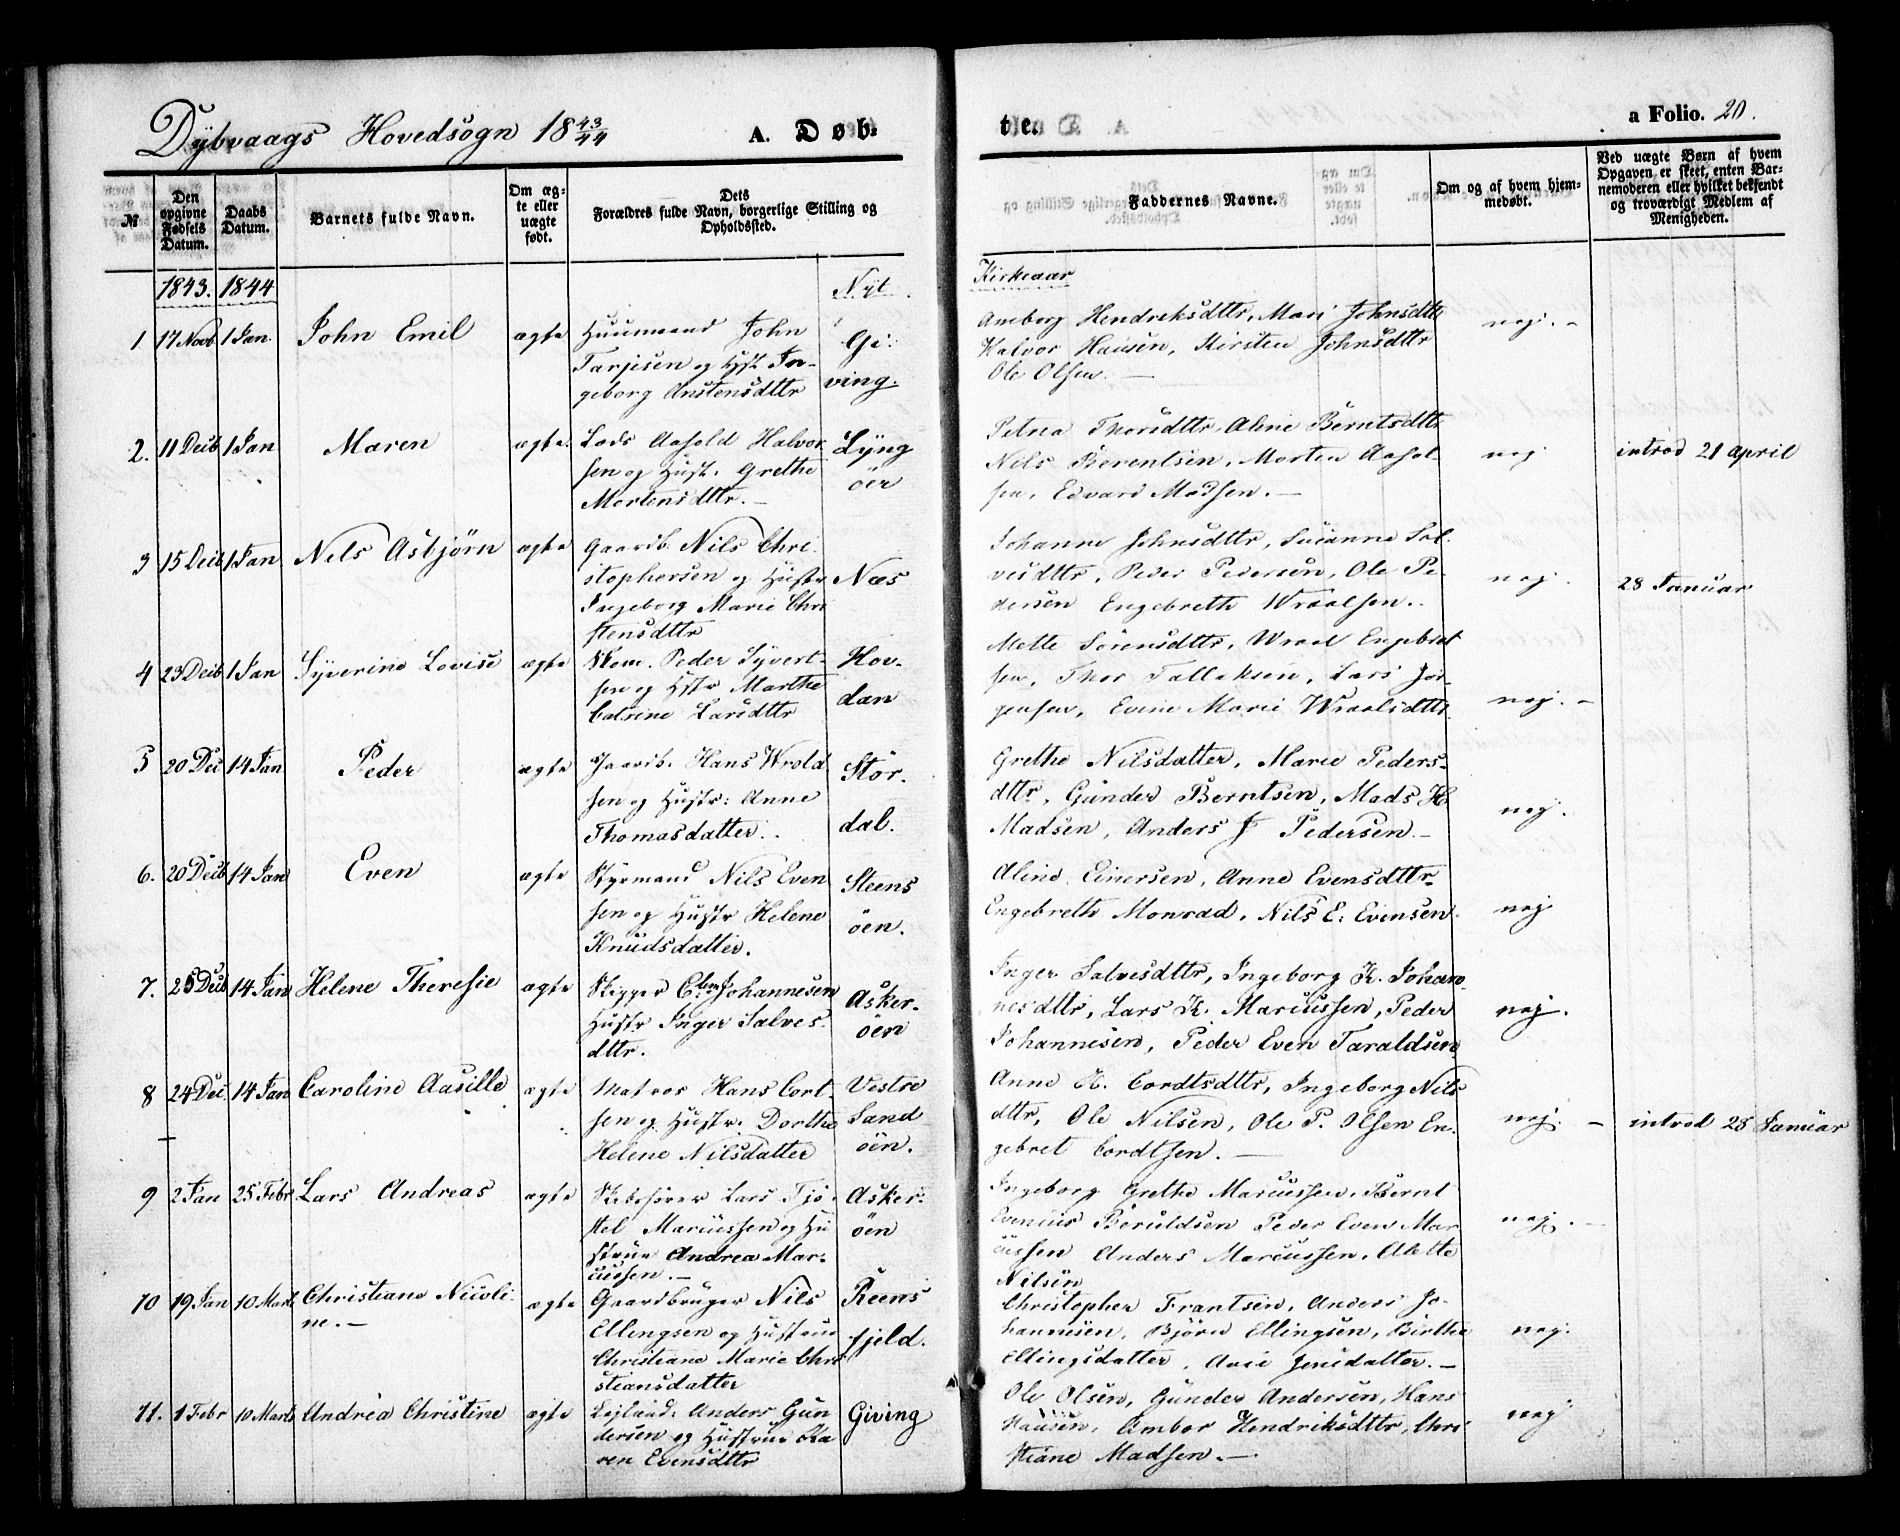 Dybvaags Hovedsogn 18 43/44 A. Døb-
te. a Folio. 20.
№
Den opgivne Fødsels Datum.
Daabs Datum.
Barnets fulde Navn.
Om æg-
te eller
uægte
født.
Dets
Forældres fulde Navn, borgerlige Stilling og
Opholdssted.
Faddernes Navne.
Om og af hvem hjem-
medøbt.
Ved uægte Børn af hvem
Opgaven er skeet, enten Bar-
nemoderen eller hvilket bekjendt
og troværdigt Medlem af
Menigheden.
1843. 1844 Nÿt Kirkeaar
1 17 Novb 1 Jan. John Emil ægte
Huusmand John
Tarjesen og Hst. In-
geborg Anstensdttr
Gi-
ving.
Amborg Hendriksdttr, Mari Johnsdttr
Halvor Hansen, Kirsten Johnsdttr
Ole Olsen. —
nej. -
2. 11 Decb 1 Jan Maren ægte.
Lods Aasold Halvor
sen og Hust. Grethe
Mortensdttr. —
Lÿng
öer
Petna Thorsdttr, Aline Berntsdttr
Nils Berentsen, Morten Aasol-
sen, Edvard Madsen. —
nej
introd 21 April
3 15 Decb 1 Jan Nels Asbjørn ægte
Gaardb. Nils Chri
stophersen og Hustr
Ingeborg Marie Chri
stensdttr
Næs
Johanne Johnsdttr, Susanne Sal
vesdttr, Peder Pedersen, Ole Pe-
dersen Engebreth Wraalsen.
nej.
28 Januar
4 23 Decb 1 Jan Syverine Lovise ægte
Skom. Peder Syvert-
sen og Hstr Marthe
Catrine Larsdttr
Hov-
dan
Mette Sörensdttr, Wraal Engebret
sen, Thor Tallaksen, Lars Jör-
gensen, Evine Marie Wraalsdttr.
nej. -
5 20 Dec 14 Jan Peder ægte
Gaardb. Hans Wrold
sen og Hustr: Anne
Thomasdatter.
Stör-
dal.
Grethe Nilsdatter, Marie Peders-
dttr, Gunder Berntsen, Mads H.
Madsen, Anders J Pedersen. —
nej.
6. 20 Decb 14 Jan Even ægte
Styrmand Nils Even
sen og Hustr Helene
Knudsdatter.
Steens
öen.
Aline Einersen, Anne Evensdttr
Engebreth Monrad, Nils E. Evensen.
nej
7. 25 Decb 14 Jan Helene Theresie ægte
Skipper Johannesen
Hustr Inger Salves
dttr.
Asker-
öen
Inger Salvesdttr, Ingeborg K. Johan-
nesdttr, Lars K. Marcussen, Peder
Johannesen, Peder Even Taraldsen
nej.
8 24 Dec. 14 Jan Caroline Aasille ægte
Matros Hans Cort-
sen og Hustr. Dorthe
Helene Nilsdatter
Vestre
Sand
öen.
Anne K. Cordtsdttr, Ingeborg Nils
dttr, Ole Nilsen, Ole P. Olsen En-
gebret Cordtsen. —
nej. -
introd 28 Januar
9 2 Jan 25 Febr Lars Andreas ægte
Skibsfører Lars Tjö-
stel Marcussen og Hu
strue Andrea Mar-
cussen. —
Asker-
öen
Ingeborg Grethe Marcussen, Bernt
Evenius Beruldsen Peder Even Mar
cussen Anders Marcussen, Alette
Nilsen
nej. -
10 19 Jan 10 Marts Christiane Nicoli-
ne. —
ægte
Gaardbruger Nils
Ellingsen og Hustrue
Christiane Marie Chri
stiansdatter
Reens
fjeld.
Christopher Frantsen, Anders Jo-
hannesen, Björn Ellingsen, Birthe
Ellingsdatter, Aase Jensdatter. —
nej.
11. 1 Febr 10 Marts Andrea Christine ægte
Lejlænd. Anders Gun
dersen og Hustrue Ka
ren Evensdttr
Giving
Ole Olsen, Gunder Andersen, Hans
Hansen, Ambor Hendriksdttr, Chri
stiane Madsen. —
nej